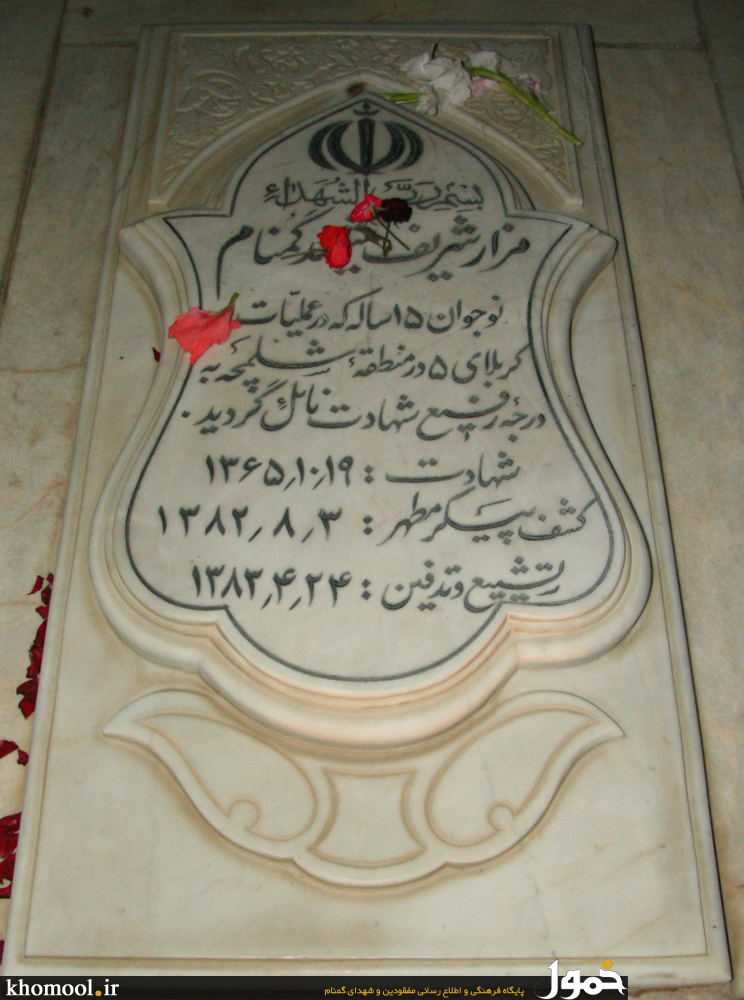 بسم رب الشهداء
مزار شریف شهید گمنام
نوجوان ۱۵ ساله که در عملیّات
کربلای ۵ در منطقهٔ شلمچه به
درجهٔ رفیع شهادت نائل گردید.
شهادت : ۱۳۶۵٫۱۰٫۱۹
کشف پیکر مطهر : ۱۳۸۲٫۸٫۳
تشییع و تدفین : ۱۳۸۳٫۴٫۲۴
khomool.ir
پایگاه فرهنگی و اطلاع رسانی مفقودین و شهدای گمنام
خمول